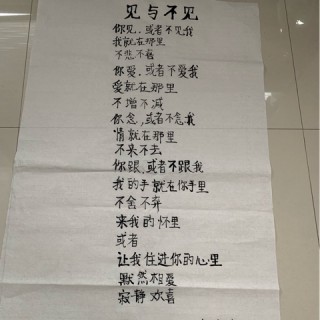 见与不见
你见，或者不见我
我就在那里
不悲不喜
你爱，或者不爱我
爱就在那里
不增不减
你念，或者不念我
情就在那里
不来不去
你跟，或者不跟我
我的手就在你手里
不舍不弃
来我的怀里
或者
让我住进你的心里
默然相爱
寂静欢喜